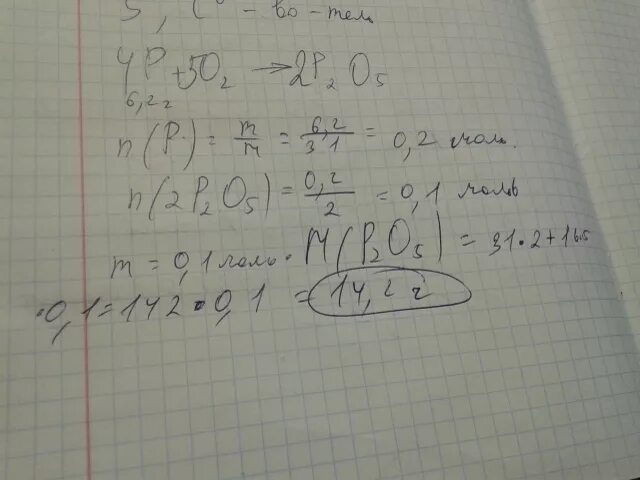 5, С° - во - тель
4P + 5O₂ → 2P₂O₅
6,2 г
n(P) = m/M = 6,2/31 = 0,2 моль.
n(2P₂O₅) = 0,2/2 = 0,1 моль
m = 0,1 моль · M(P₂O₅) = 31·2+16·5
·0,1 = 142·0,1 = 14,2 г